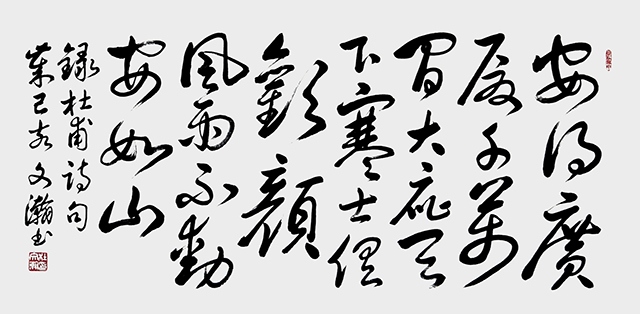 安得廣
厦千萬
间大庇天
下寒士俱
歡顔
風雨不動
安如山
録杜甫詩句
歲己亥文瀚书